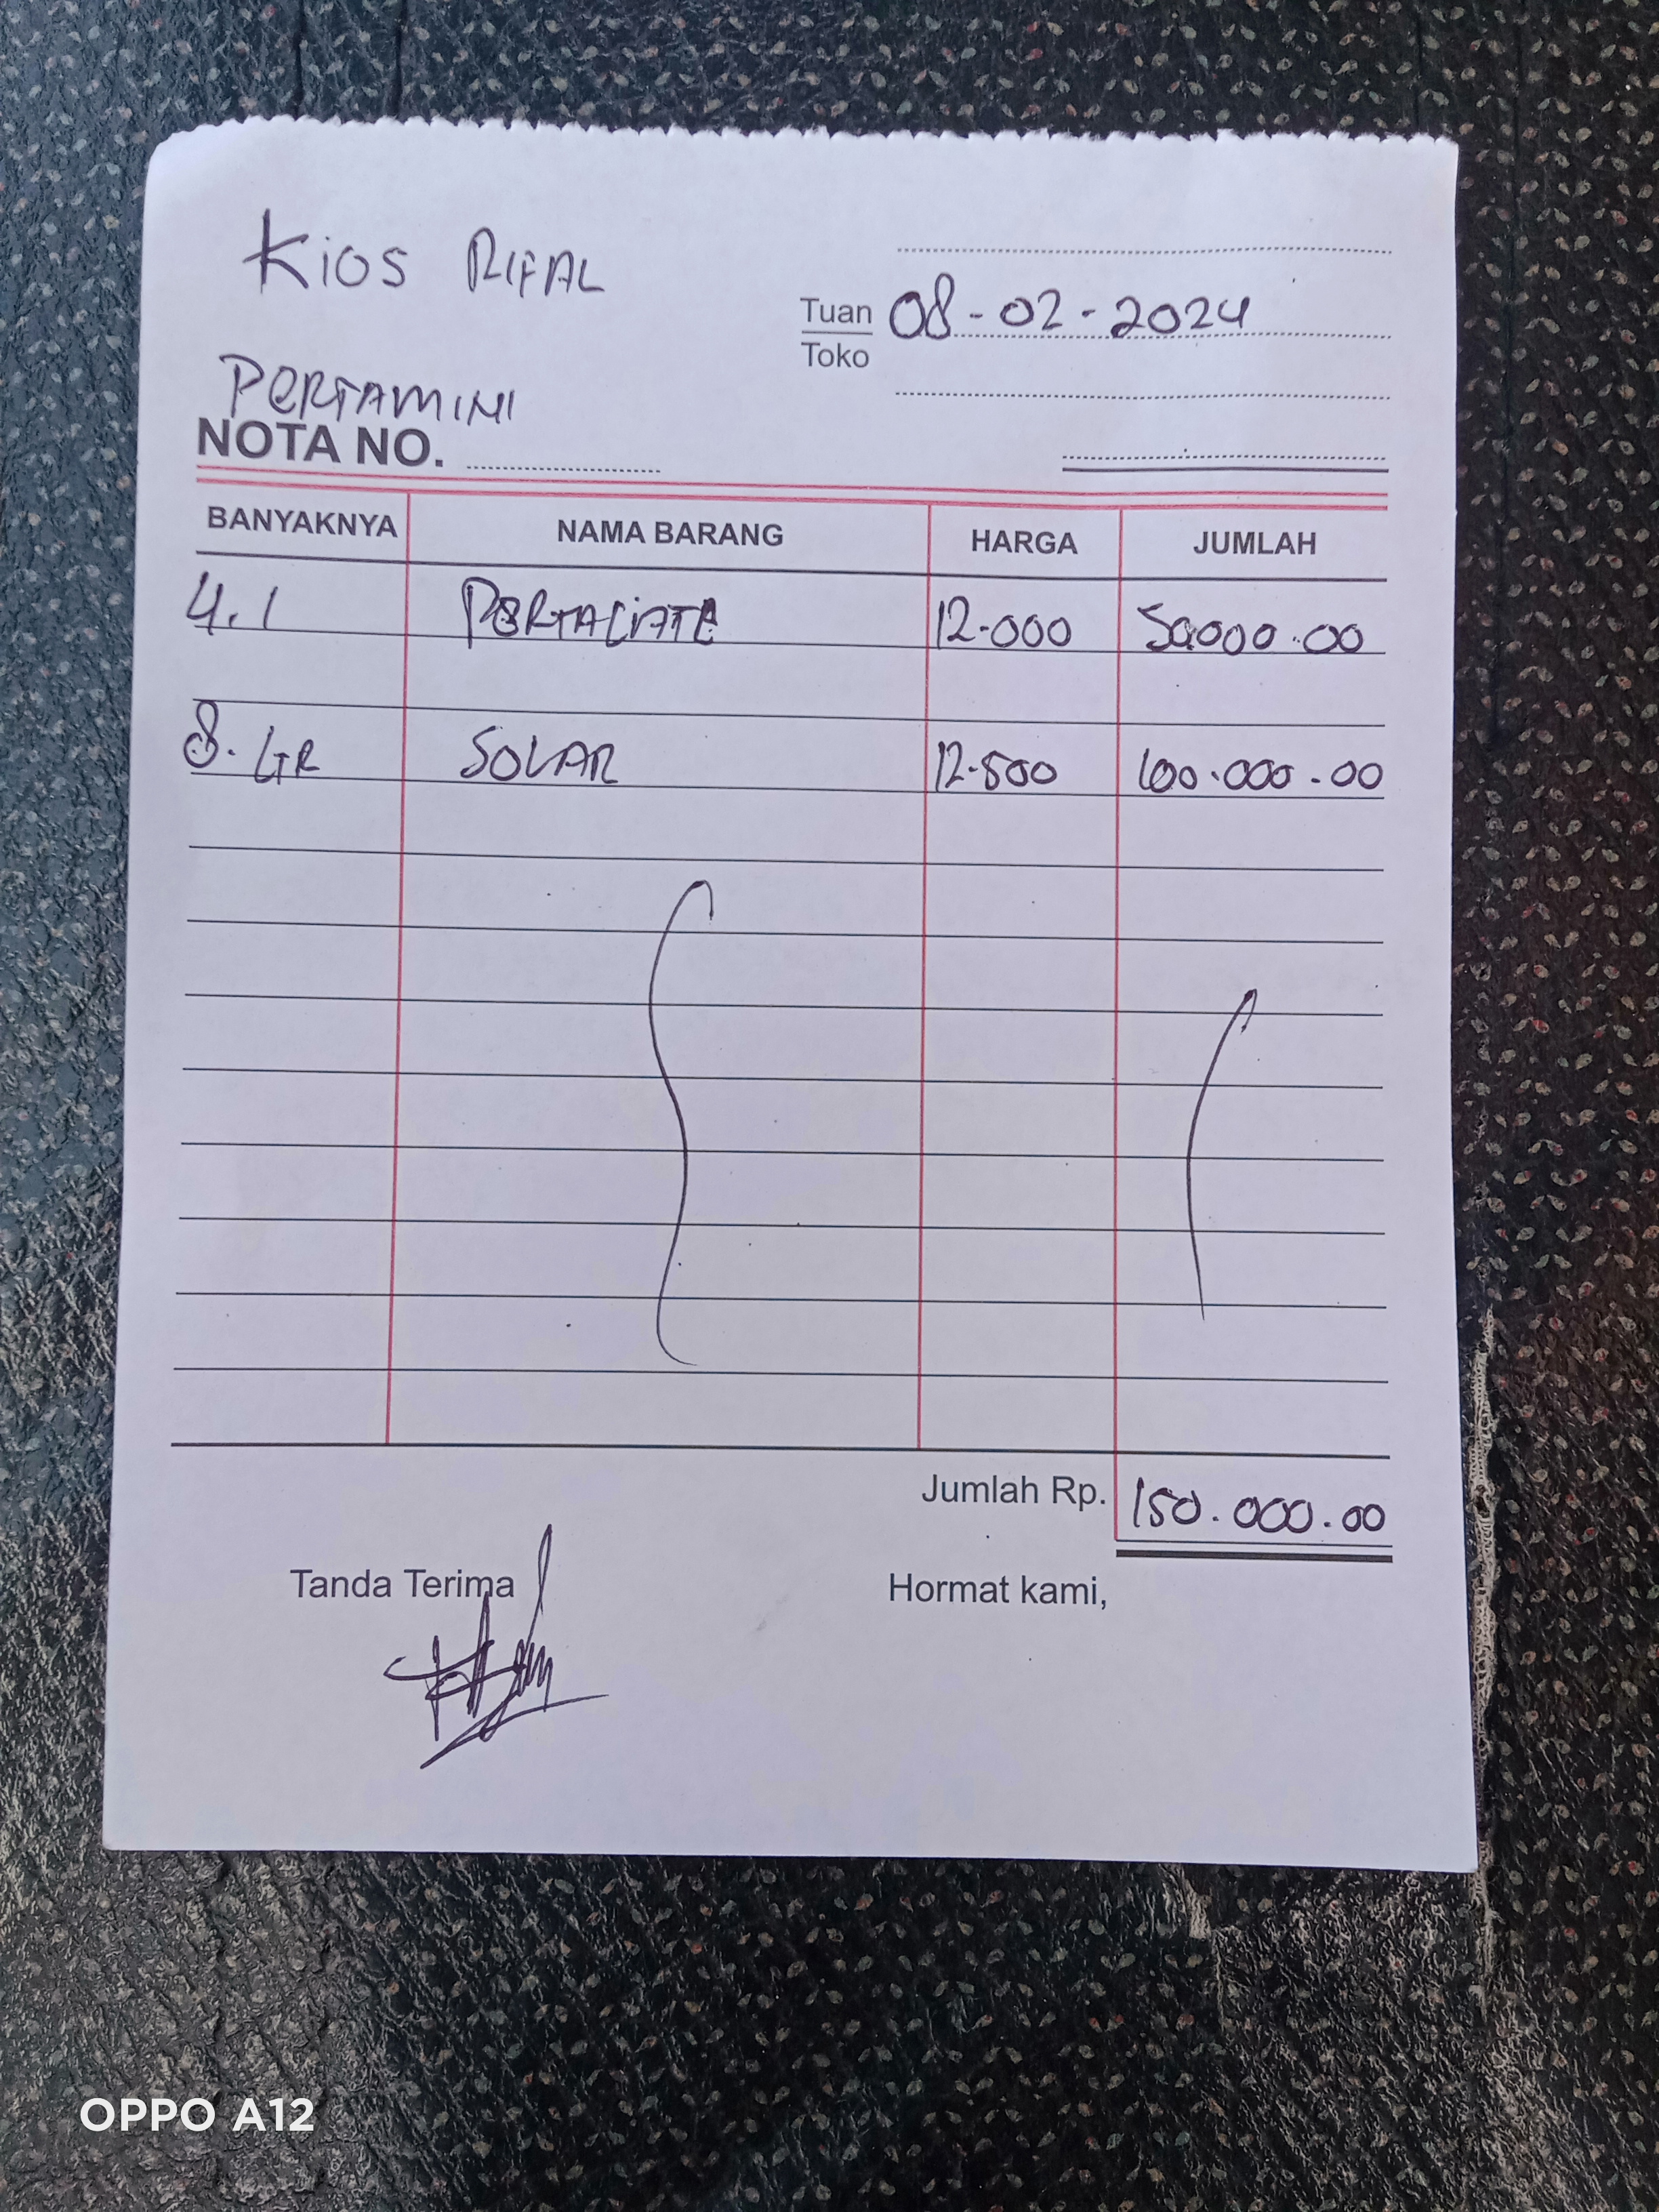 Kios RIFAL
Tuan 08-02-2024
Toko
PERTAMINI
NOTA NO.
BANYAKNYA NAMA BARANG HARGA JUMLAH
4.1 PERTALIATE 12.000 50.000.00
8. LTR SOLAR 12.500 100.000.00
Jumlah Rp. 150.000.00
Tanda Terima Hormat kami,
OPPO A12